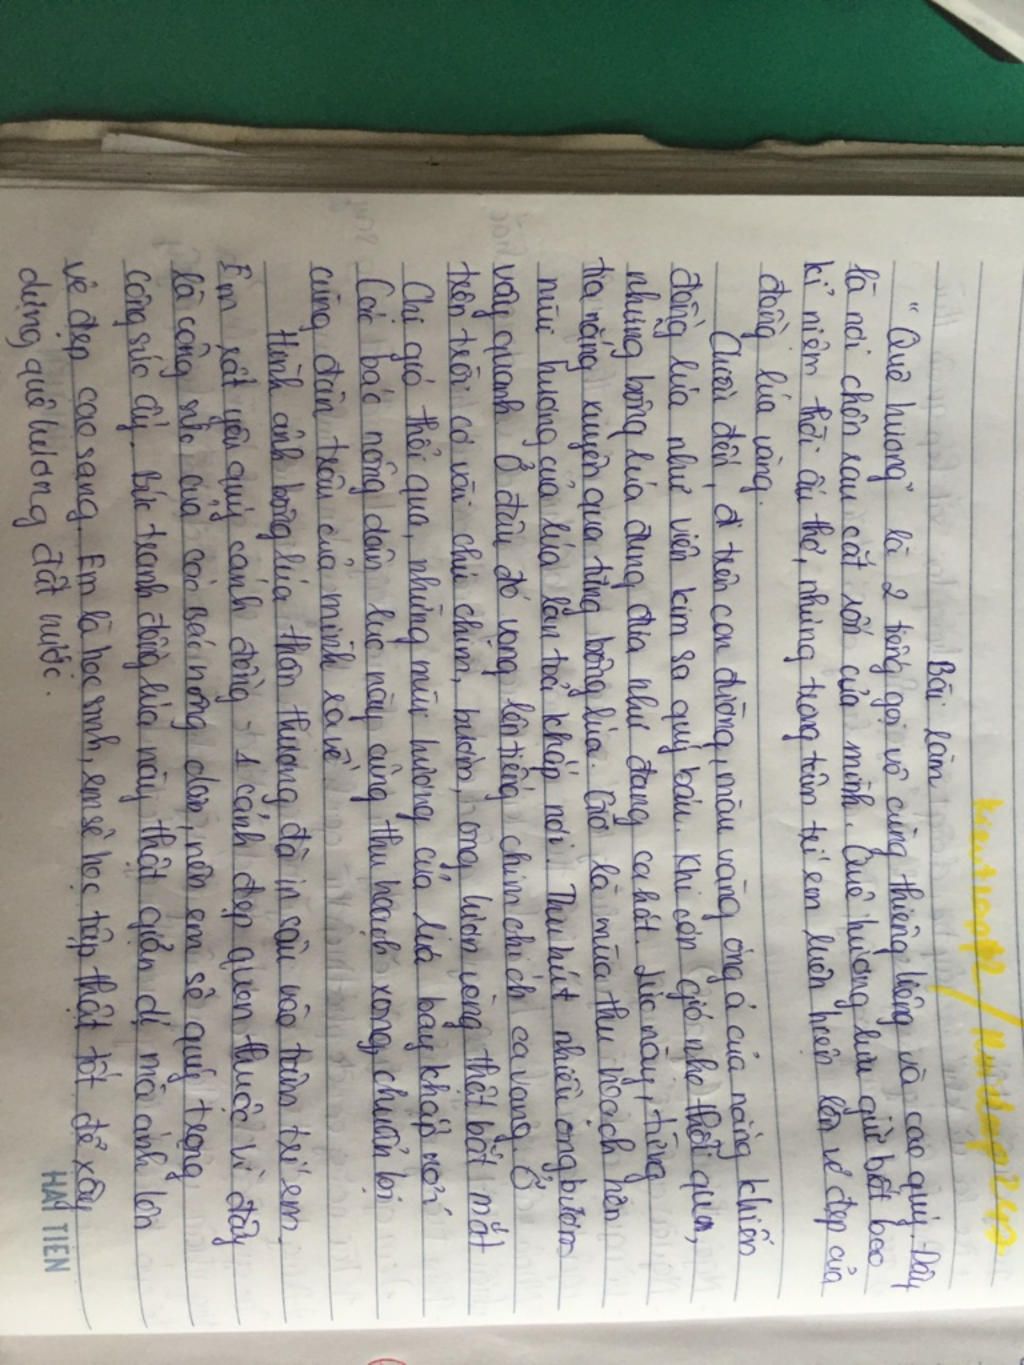 Bài làm
"Quê hương" là 2 tiếng gọi vô cùng thiêng liêng và cao quý. Đây
là nơi chôn rau cắt rốn của mình. Quê hương lưu giữ biết bao
kỉ niệm thời ấu thơ, nhưng trong tâm trí em luôn hiện lên vẻ đẹp của
đồng lúa vàng.
Chiều đến, đi trên con đường, màu vàng óng ả của nắng khiến
đồng lúa như viên kim sa quý báu. Khi cơn gió nhẹ thổi qua,
những bông lúa đung đưa như đang ca hát. Lúc này, từng
tia nắng xuyên qua từng bông lúa. Giờ là mùa thu hoạch nên
mùi hương của lúa lan toả khắp nơi. Thu hút nhiều ong bướm
vây quanh. Ở đâu đó vang lên tiếng chim chích ca vang. Ở
trên trời có vài chú chim, bướm, ong lượn vòng thật bắt mắt
Chị gió thổi qua, những mùi hương của lúa bay khắp nơi
Các bác nông dân lúc này cũng thu hoạch xong, chuẩn bị
cùng đàn trâu của mình ra về
Hình ảnh bông lúa thân thương đã in sâu vào tâm trí em.
Em rất yêu quý cánh đồng - 1 cảnh đẹp quen thuộc vì đây
là công sức của các bác nông dân, nên em sẽ quý trọng
công sức ấy. Bức tranh đồng lúa này thật giản dị mà ánh lên
vẻ đẹp cao sang. Em là học sinh, em sẽ học tập thật tốt để xây
dựng quê hương đất nước.
HẢI TIẾN